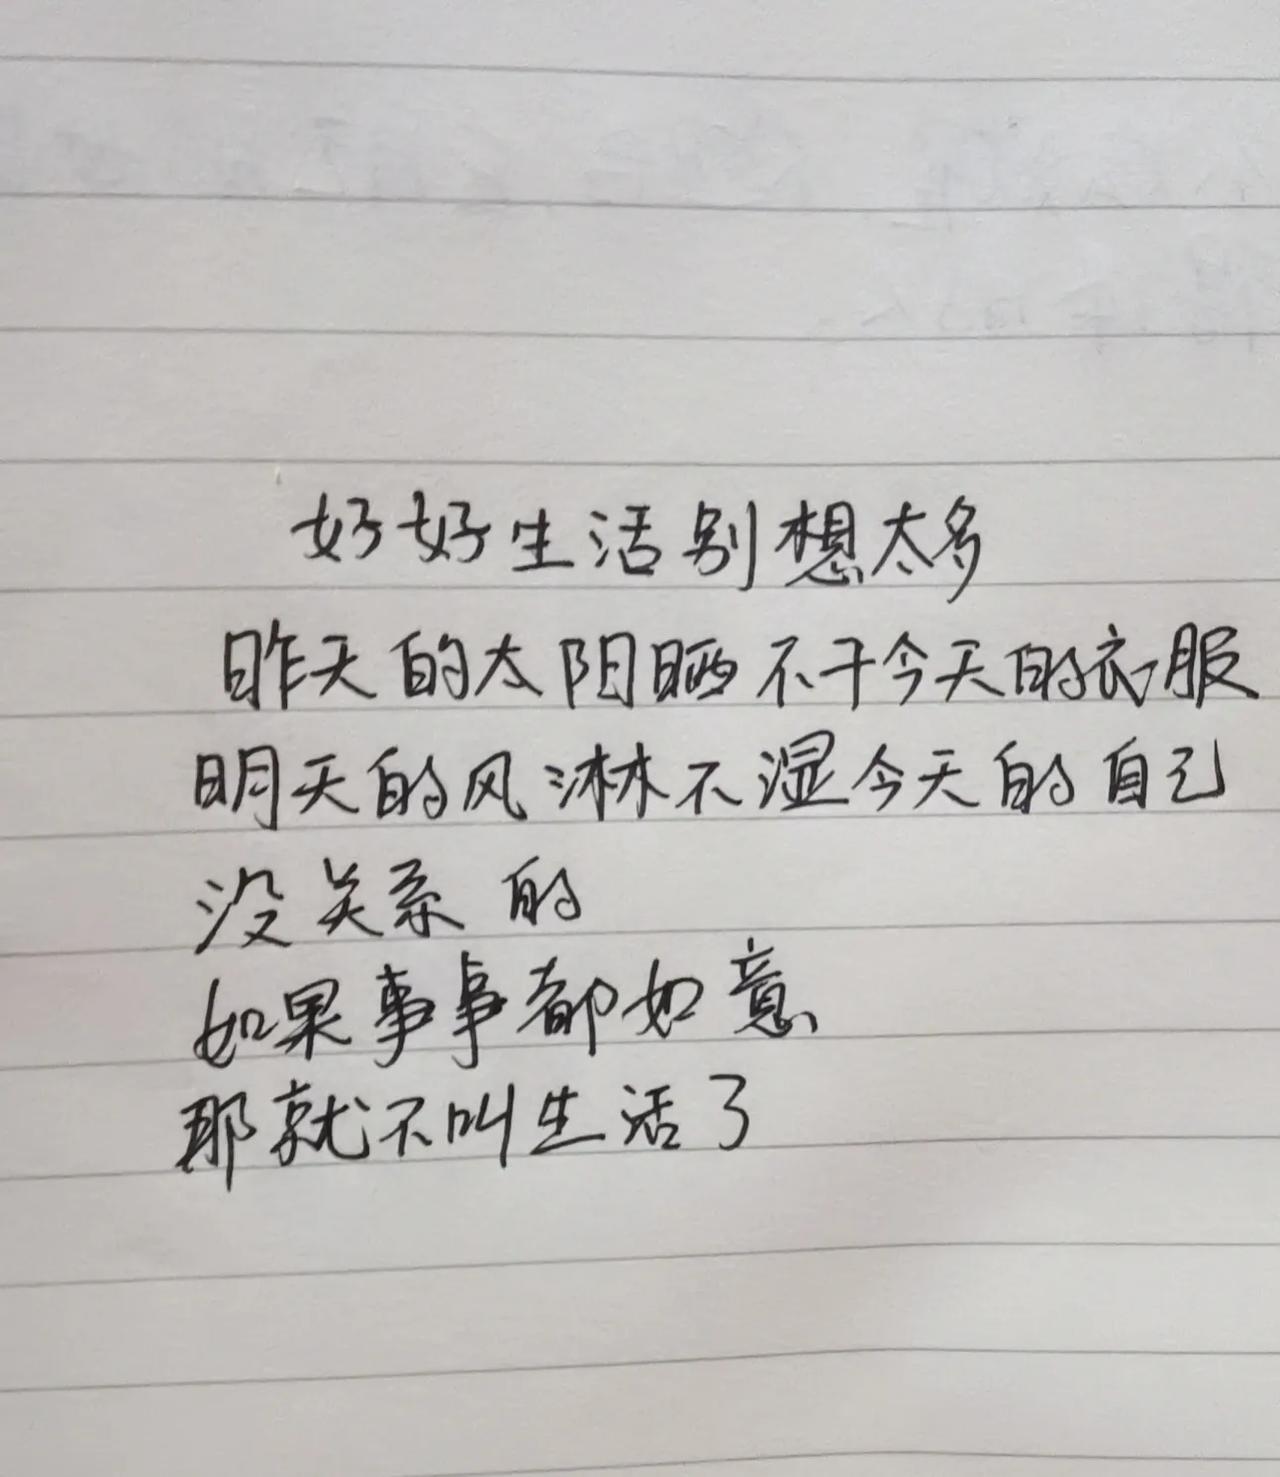 好好生活别想太多
昨天的太阳晒不干今天的衣服
明天的风淋不湿今天的自己
没关系的
如果事事都如意
那就不叫生活了